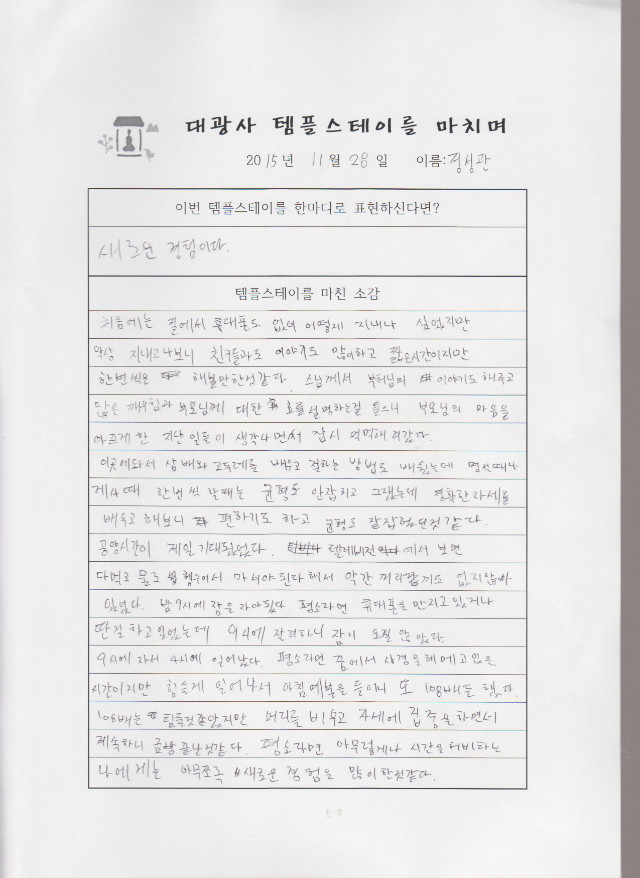 대광사 템플스테이를 마치며
2015년 11월 28일 이름:정성관
이번 템플스테이를 한마디로 표현하신다면?
새로운 경험이다.
템플스테이를 마친 소감
처음에는 절에서 휴대폰도 없이 어떻게 지내나 싶었지만
막상 지내고나보니 친구들과도 이야기도 많이하고 짧은시간이지만
한번씩은 해볼만한것같다. 스님께서 부처님의 이야기도 해주고
많은 깨우침과 부모님께 대한 효를 설명하는걸 들으니 부모님의 마음을
아프게 한 지난 일들이 생각나면서 잠시 먹먹해져갔다.
이곳에와서 삼배와 고두례를 배우고 절하는 방법도 배웠는데 명선때나
제사때 한번씩 할때는 균형도 안잡히고 그랬는데 정확한자세를
배우고 해보니 편하기도 하고 균형도 잘잡혔던것 같다.
공양시간이 제일 기대되었었다. 텔레비전에서 보면
다먹고 물로 헹구어서 마셔야된다 해서 약간 꺼려짐도 없지않아
있었다. 밤 9시에 잠을 자야됬다 평소라면 휴대폰을 만지고 있었거나
딴짓 하고 있었는데 9시에 잘려하니 잠이 오질 않았다.
9시에 자서 4시에 일어났다. 평소라면 꿈에서 사경을 헤메고있을
시간이지만 힘들게 일어나서 아침예불을 들이니 또 108배를 했다.
108배는 힘들것 같았지만 머리를 비우고 자세에 집중을 하면서
계속하니 금방 끝난것같다. 평소라면 아무렇게나 시간을 허비하는
나에게는 아무쪼록 새로운 경험을 많이 한것같다.